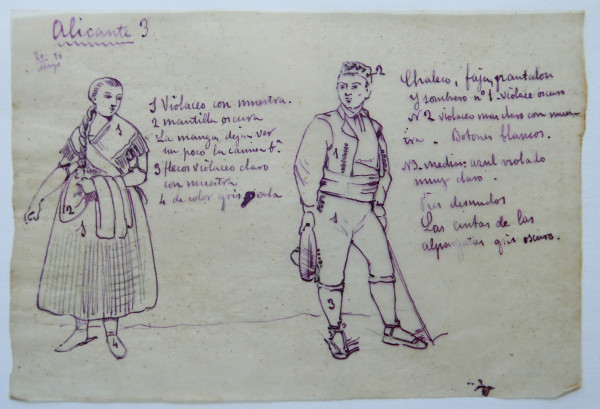 Alicante 3
1 Violaceo con muestra.
2 mantilla oscura
La manga dejan ver
un poco la camisa bª
3 flecos violaceo claro
con muestra
4 de color gris perla
Chaleco, faja, pantalon
y sombrero nº 1. Violace oscuro
Nº 2 violaceo mas claro con mues
tra. Botones blancos.
Nº 3. medias azul violado
muy claro.
Pies desnudos
Las cintas de las
alpargatas gris oscuro.
1
2
3
4
1
2
1
1
3